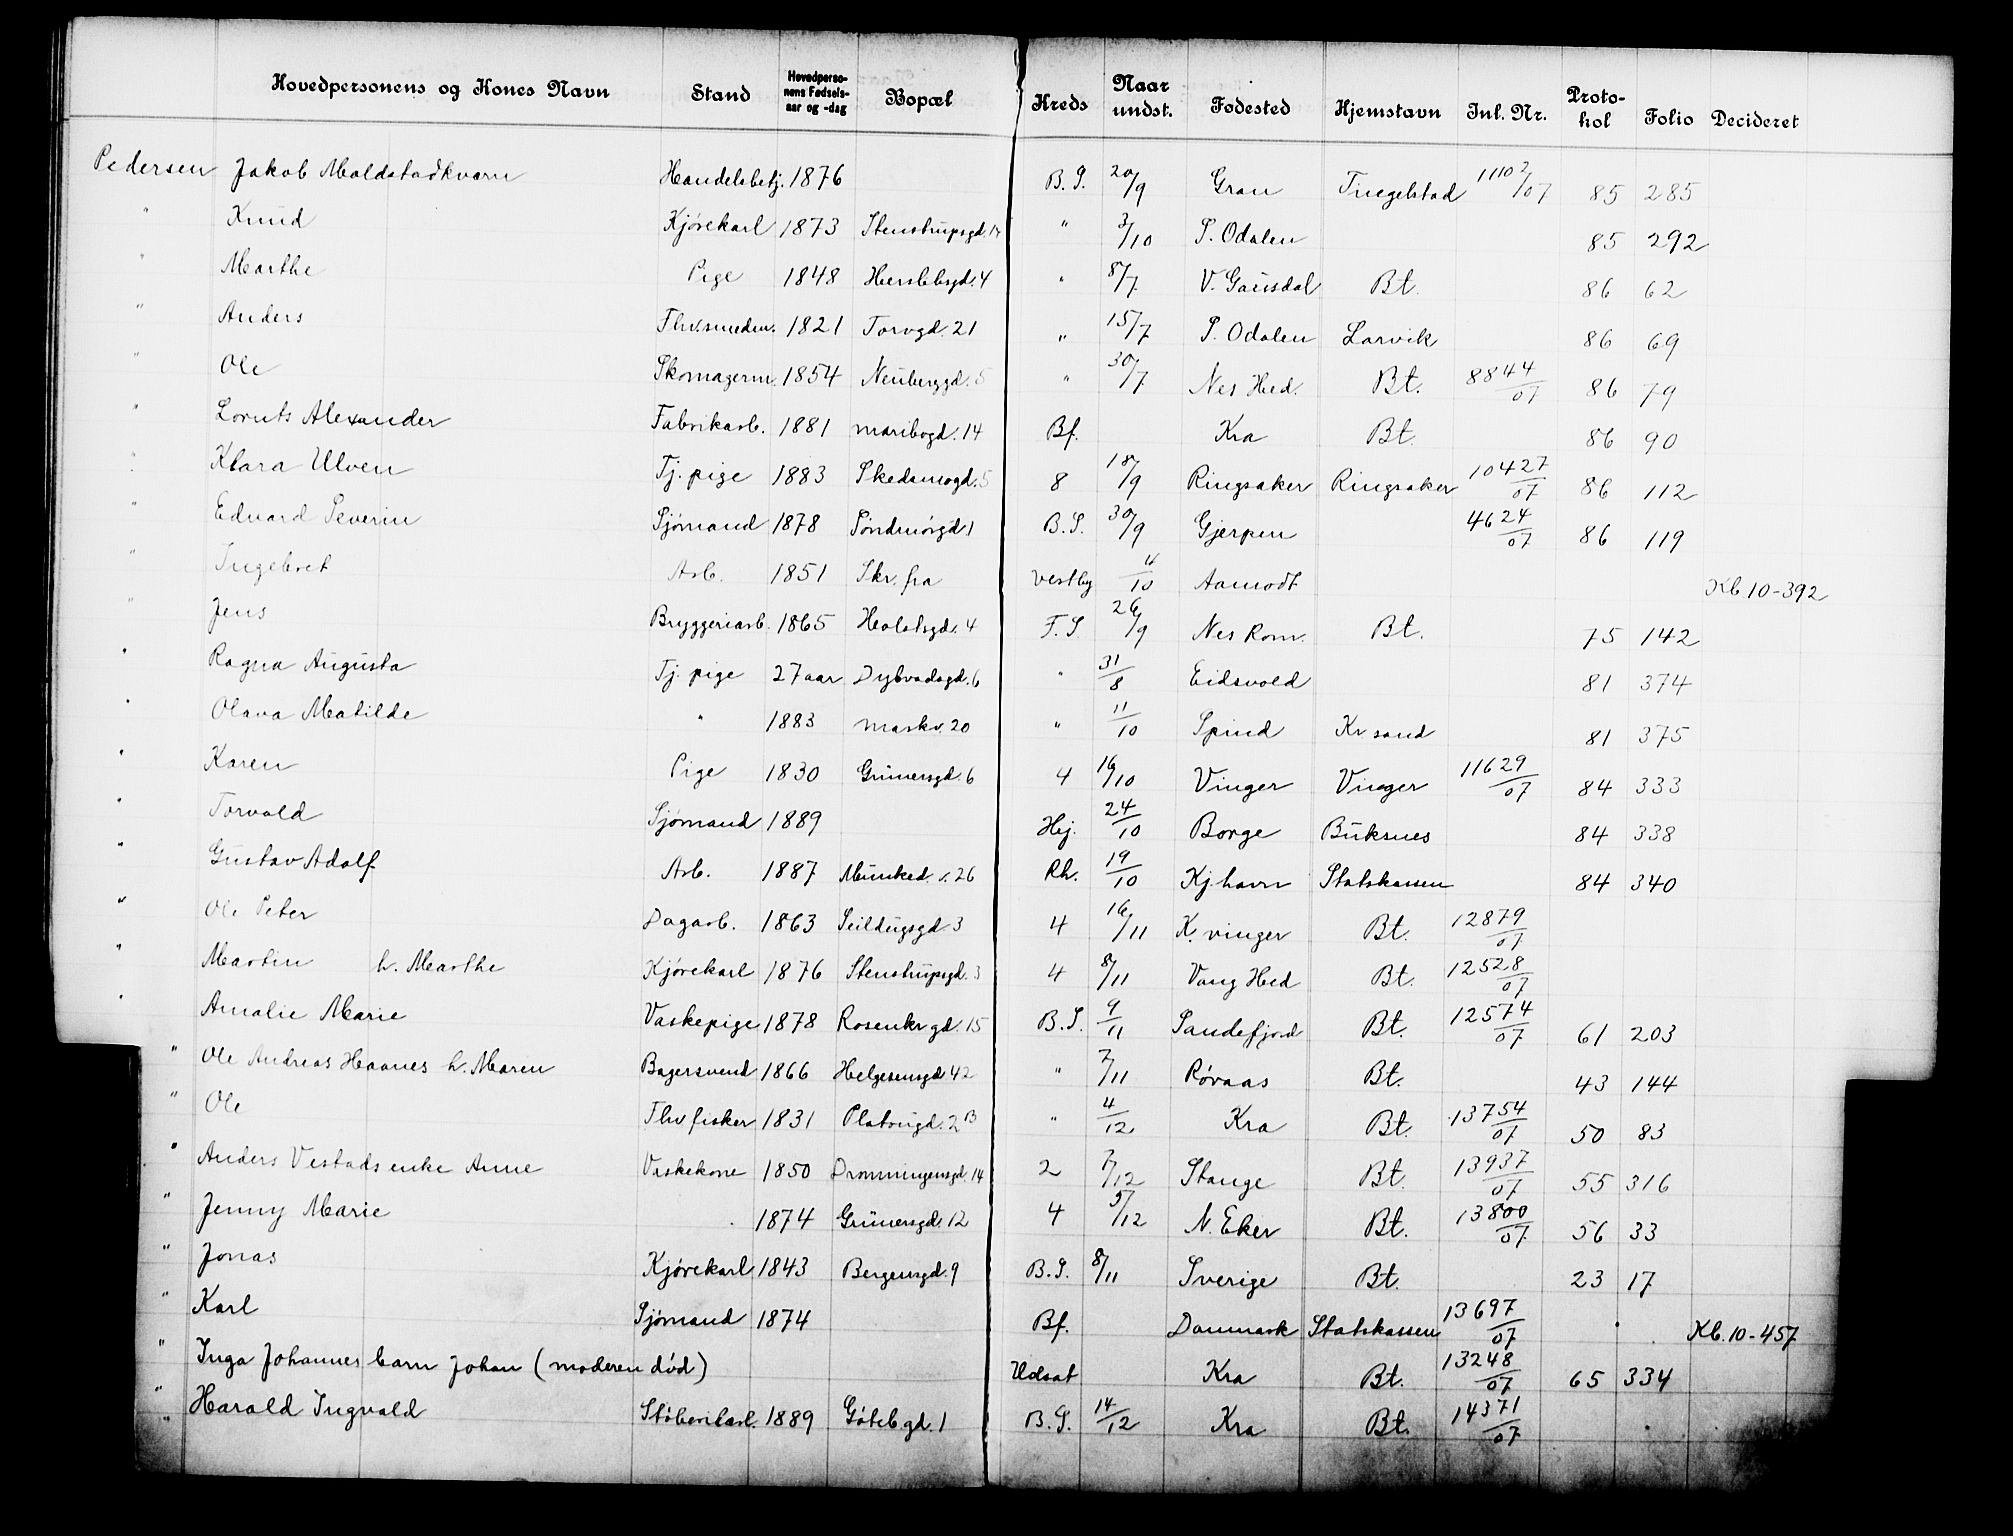 Hovedpersonens og Kones Navn Stand Hovedperso-nens Fødsels-aar og -dag Bopæl Kreds Naar undst. Fødested Hjemstavn Inl. Nr. Proto-kol Folio Decideret
Pedersen Jakob Maldstadkvarn Handelsbetj. 1876 B.S. 20/9 Gran Tingelstad 11102/07 85 285
" Knud Kjørekarl 1873 Stenstrupsgd. " 3/10 S. Odalen 85 292
" Marthe Pige 1848 Herslebsgd. 4 " 8/7 V. Gausdal Bt. 86 62
" Anders Fhv. smedm. 1821 Torvgd. 21 " 15/7 S. Odalen Larvik 86 69
" Ole Skomagerm. 1854 Neuberggd. 5 " 30/7 Nes Hed. Bt. 8844/07 86 79
" Lorents Alexander Fabrikarb. 1881 Maribogd. 14 Bf. Kra Bt. 86 90
" Klara Ulven Tj. pige 1883 Skedsmogd. 5 8 18/9 Ringsaker Ringsaker 10427/07 86 112
" Edvard Severin Sjømand 1878 Søndmørgd 1 B.S. 30/9 Gjerpen 4624/07 86 119
" Ingebret Arb. 1851 Skr. fra Vestby 4/10 Aamodt Kb 10-392
" Jens Bryggeriarb. 1865 Holstsgd. 4 F.S. 26/9 Nes Rom. Bt. 75 142
" Ragna Augusta Tj. pige 27 aar Dybvadsgd. 6 " 31/8 Eidsvold 81 374
" Olava Matilde " 1883 Markv. 20 " 11/10 Spind Kr sand 81 375
" Karen Pige 1830 Grünersgd. 6 4 16/10 Vinger Vinger 11629/07 84 333
" Torvald Sjømand 1889 Hj. 24/10 Borge Buksnes 84 338
" Gustav Adolf Arb. 1887 Munked. v. 26 Rh. 19/10 Kj.havn Statskassen 84 340
" Ole Peter Dagarb. 1863 Seildugsgd 3 4 16/11 K. vinger Bt. 12879/07
" Martin h. Marthe Kjørekarl 1876 Stenstrupsgd. 3 4 8/11 Vang Hed Bt. 12528/07
" Amalie Marie Vaskepige 1878 Rosenkr gd. 15 B.S. 9/11 Sandefjord Bt. 12574/07 61 203
" Ole Andreas Haanes h. Maren Bagersvend 1866 Helgesensgd 42 " 7/11 Røraas Bt. 43 144
" Ole Fhv fisker 1831 Platougd. 2 B " 4/12 Kra Bt. 13754/07 50 83
" Anders Vestads enke Anne Vaskekone 1850 Dronningensgd. 14 2 7/12 Stange Bt. 13937/07 55 316
" Jenny Marie 1874 Grünersgd. 12 4 5/12 N. Eker Bt. 13800/07 56 33
" Jonas Kjørekarl 1843 Bergensgd. 9 B.S. 8/11 Sverige Bt. 23 17
" Karl Sjømand 1874 Bf. Danmark Statskassen 13697/07 Kb. 10-457
" Inga Johannes barn Johan (moderen død) Udsat Kra Bt. 13248/07 65 334
" Harald Ingvald Støberiarb. 1889 Gøteb.gd. 1 B.S. 14/12 Kra Bt. 14371/07